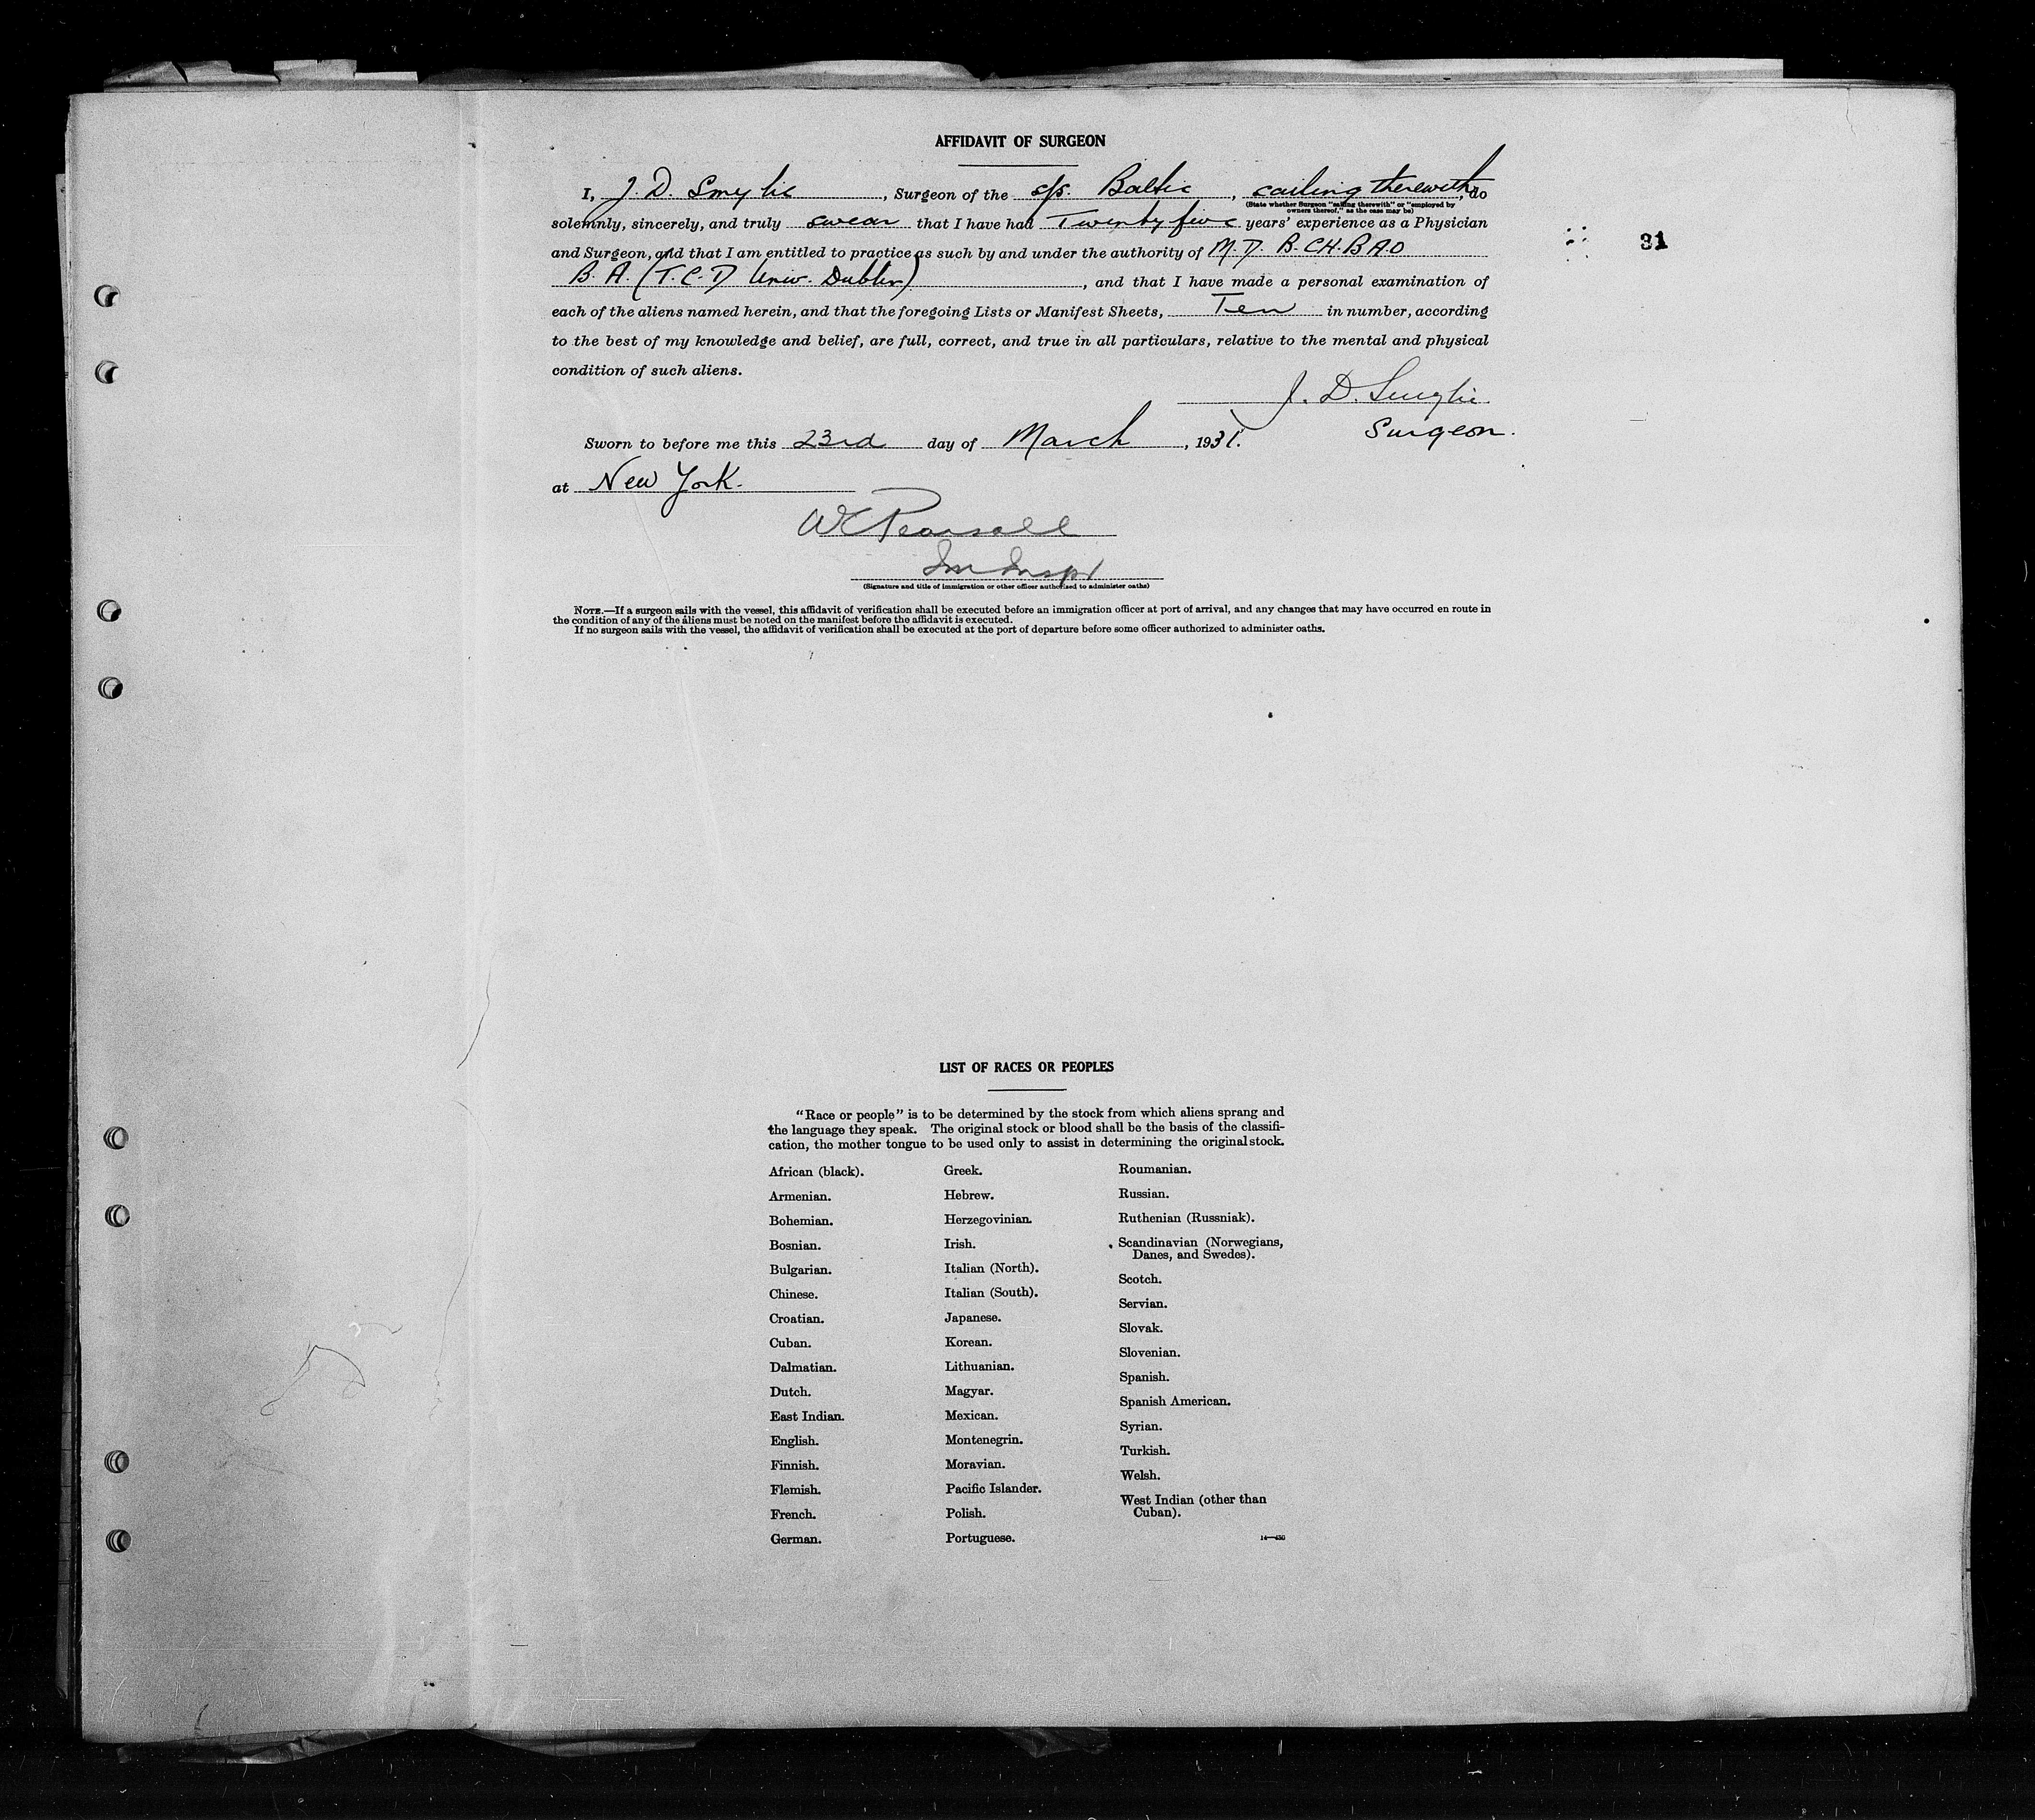 AFFIDAVIT OF SURGEON
I, J. D. Smylie, Surgeon of the s/s. Baltic, sailing therewith, do
(State whether Surgeon "sailing therewith" or "employed by
owners thereof," as the case may be)
solemnly, sincerely, and truly swear that I have had Twenty five years' experience as a Physician
and Surgeon, and that I am entitled to practice as such by and under the authority of M.D. B.CH.B A.O
31
B. A. (T.C.D Univ. Dublin), and that I have made a personal examination of
each of the aliens named herein, and that the foregoing Lists or Manifest Sheets, Ten in number, according
to the best of my knowledge and belief, are full, correct, and true in all particulars, relative to the mental and physical
condition of such aliens.
J. D. Smylie
Surgeon.
Sworn to before me this 23rd day of March, 1931.
at New York.
W C Pearsall
Im Inspr
(Signature and title of immigration or other officer authorized to administer oaths)
NOTE.—If a surgeon sails with the vessel, this affidavit of verification shall be executed before an immigration officer at port of arrival, and any changes that may have occurred en route in
the condition of any of the aliens must be noted on the manifest before the affidavit is executed.
If no surgeon sails with the vessel, the affidavit of verification shall be executed at the port of departure before some officer authorized to administer oaths.
LIST OF RACES OR PEOPLES
"Race or people" is to be determined by the stock from which aliens sprang and
the language they speak. The original stock or blood shall be the basis of the classifi-
cation, the mother tongue to be used only to assist in determining the original stock.
African (black).
Armenian.
Bohemian.
Bosnian.
Bulgarian.
Chinese.
Croatian.
Cuban.
Dalmatian.
Dutch.
East Indian.
English.
Finnish.
Flemish.
French.
German.
Greek.
Hebrew.
Herzegovinian.
Irish.
Italian (North).
Italian (South).
Japanese.
Korean.
Lithuanian.
Magyar.
Mexican.
Montenegrin.
Moravian.
Pacific Islander.
Polish.
Portuguese.
Roumanian.
Russian.
Ruthenian (Russniak).
Scandinavian (Norwegians,
Danes, and Swedes).
Scotch.
Servian.
Slovak.
Slovenian.
Spanish.
Spanish American.
Syrian.
Turkish.
Welsh.
West Indian (other than
Cuban).
14—430